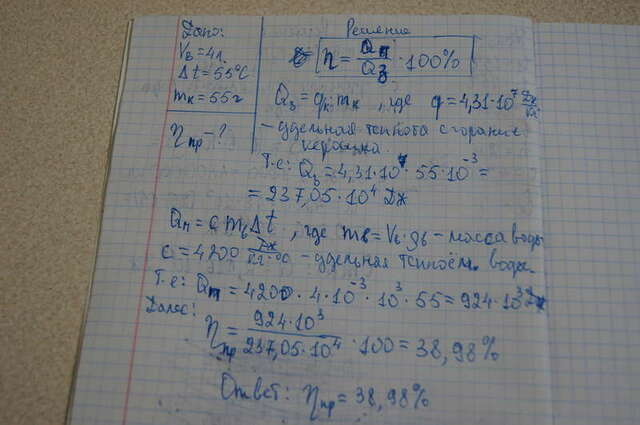 Дано:
V₈ = 4л.
Δt = 55°C
mк = 55г
ηпр - ?
Решение
η = Qп / Qз · 100%
Qз = qк mк, где q = 4,31·10⁷ Дж/кг
- удельная теплота сгорание
керосина.
Т.е: Qз = 4,31·10⁷ · 55·10⁻³ =
= 237,05·10⁴ Дж
Qп = c mв Δt, где mв = Vв·ρв - масса воды
c = 4200 Дж/кг·°C - удельная теплоём. воды.
Т.е: Qп = 4200 · 4·10⁻³ · 10³ · 55 = 924·10³ Дж
Далее:
ηпр = 924·10³ / 237,05·10⁴ · 100 = 38,98%
Ответ: ηпр = 38,98%